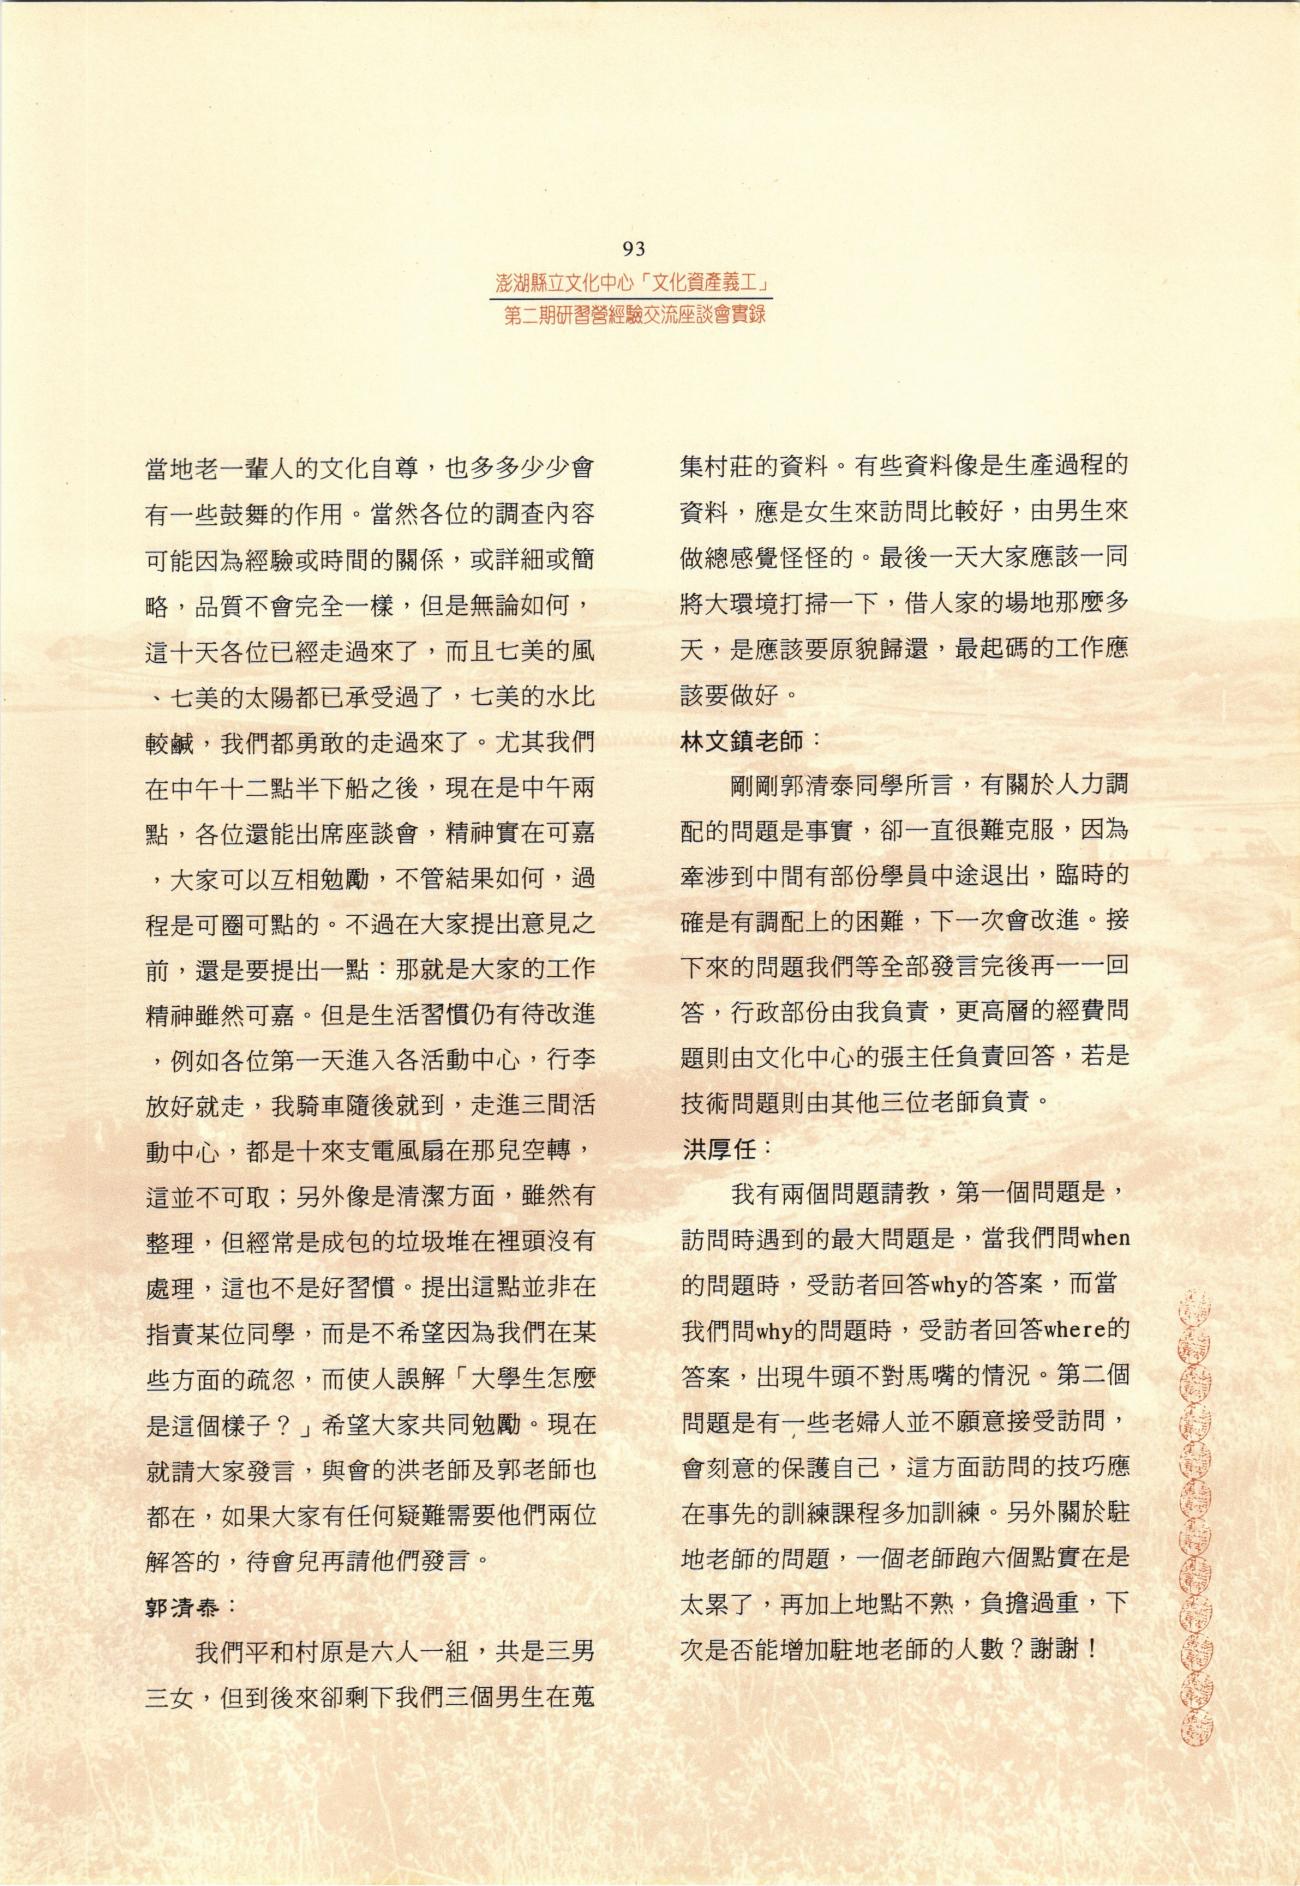 93
澎湖縣立文化中心「文化資產義工」
第二期研習營經驗交流座談會實錄
當地老一輩人的文化自尊，也多多少少會
有一些鼓舞的作用。當然各位的調查內容
可能因為經驗或時間的關係，或詳細或簡
略，品質不會完全一樣，但是無論如何，
這十天各位已經走過來了，而且七美的風
、七美的太陽都已承受過了，七美的水比
較鹹，我們都勇敢的走過來了。尤其我們
在中午十二點半下船之後，現在是中午兩
點，各位還能出席座談會，精神實在可嘉
，大家可以互相勉勵，不管結果如何，過
程是可圈可點的。不過在大家提出意見之
前，還是要提出一點：那就是大家的工作
精神雖然可嘉。但是生活習慣仍有待改進
，例如各位第一天進入各活動中心，行李
放好就走，我騎車隨後就到，走進三間活
動中心，都是十來支電風扇在那兒空轉，
這並不可取；另外像是清潔方面，雖然有
整理，但經常是成包的垃圾堆在裡頭沒有
處理，這也不是好習慣。提出這點並非在
指責某位同學，而是不希望因為我們在某
些方面的疏忽，而使人誤解「大學生怎麼
是這個樣子？」希望大家共同勉勵。現在
就請大家發言，與會的洪老師及郭老師也
都在，如果大家有任何疑難需要他們兩位
解答的，待會兒再請他們發言。
郭清泰：
我們平和村原是六人一組，共是三男
三女，但到後來卻剩下我們三個男生在蒐
集村莊的資料。有些資料像是生產過程的
資料，應是女生來訪問比較好，由男生來
做總感覺怪怪的。最後一天大家應該一同
將大環境打掃一下，借人家的場地那麼多
天，是應該要原貌歸還，最起碼的工作應
該要做好。
林文鎮老師：
剛剛郭清泰同學所言，有關於人力調
配的問題是事實，卻一直很難克服，因為
牽涉到中間有部份學員中途退出，臨時的
確是有調配上的困難，下一次會改進。接
下來的問題我們等全部發言完後再一一回
答，行政部份由我負責，更高層的經費問
題則由文化中心的張主任負責回答，若是
技術問題則由其他三位老師負責。
洪厚任：
我有兩個問題請教，第一個問題是，
訪問時遇到的最大問題是，當我們問when
的問題時，受訪者回答why的答案，而當
我們問why的問題時，受訪者回答where的
答案，出現牛頭不對馬嘴的情況。第二個
問題是有一些老婦人並不願意接受訪問，
會刻意的保護自己，這方面訪問的技巧應
在事先的訓練課程多加訓練。另外關於駐
地老師的問題，一個老師跑六個點實在是
太累了，再加上地點不熟，負擔過重，下
次是否能增加駐地老師的人數？謝謝！